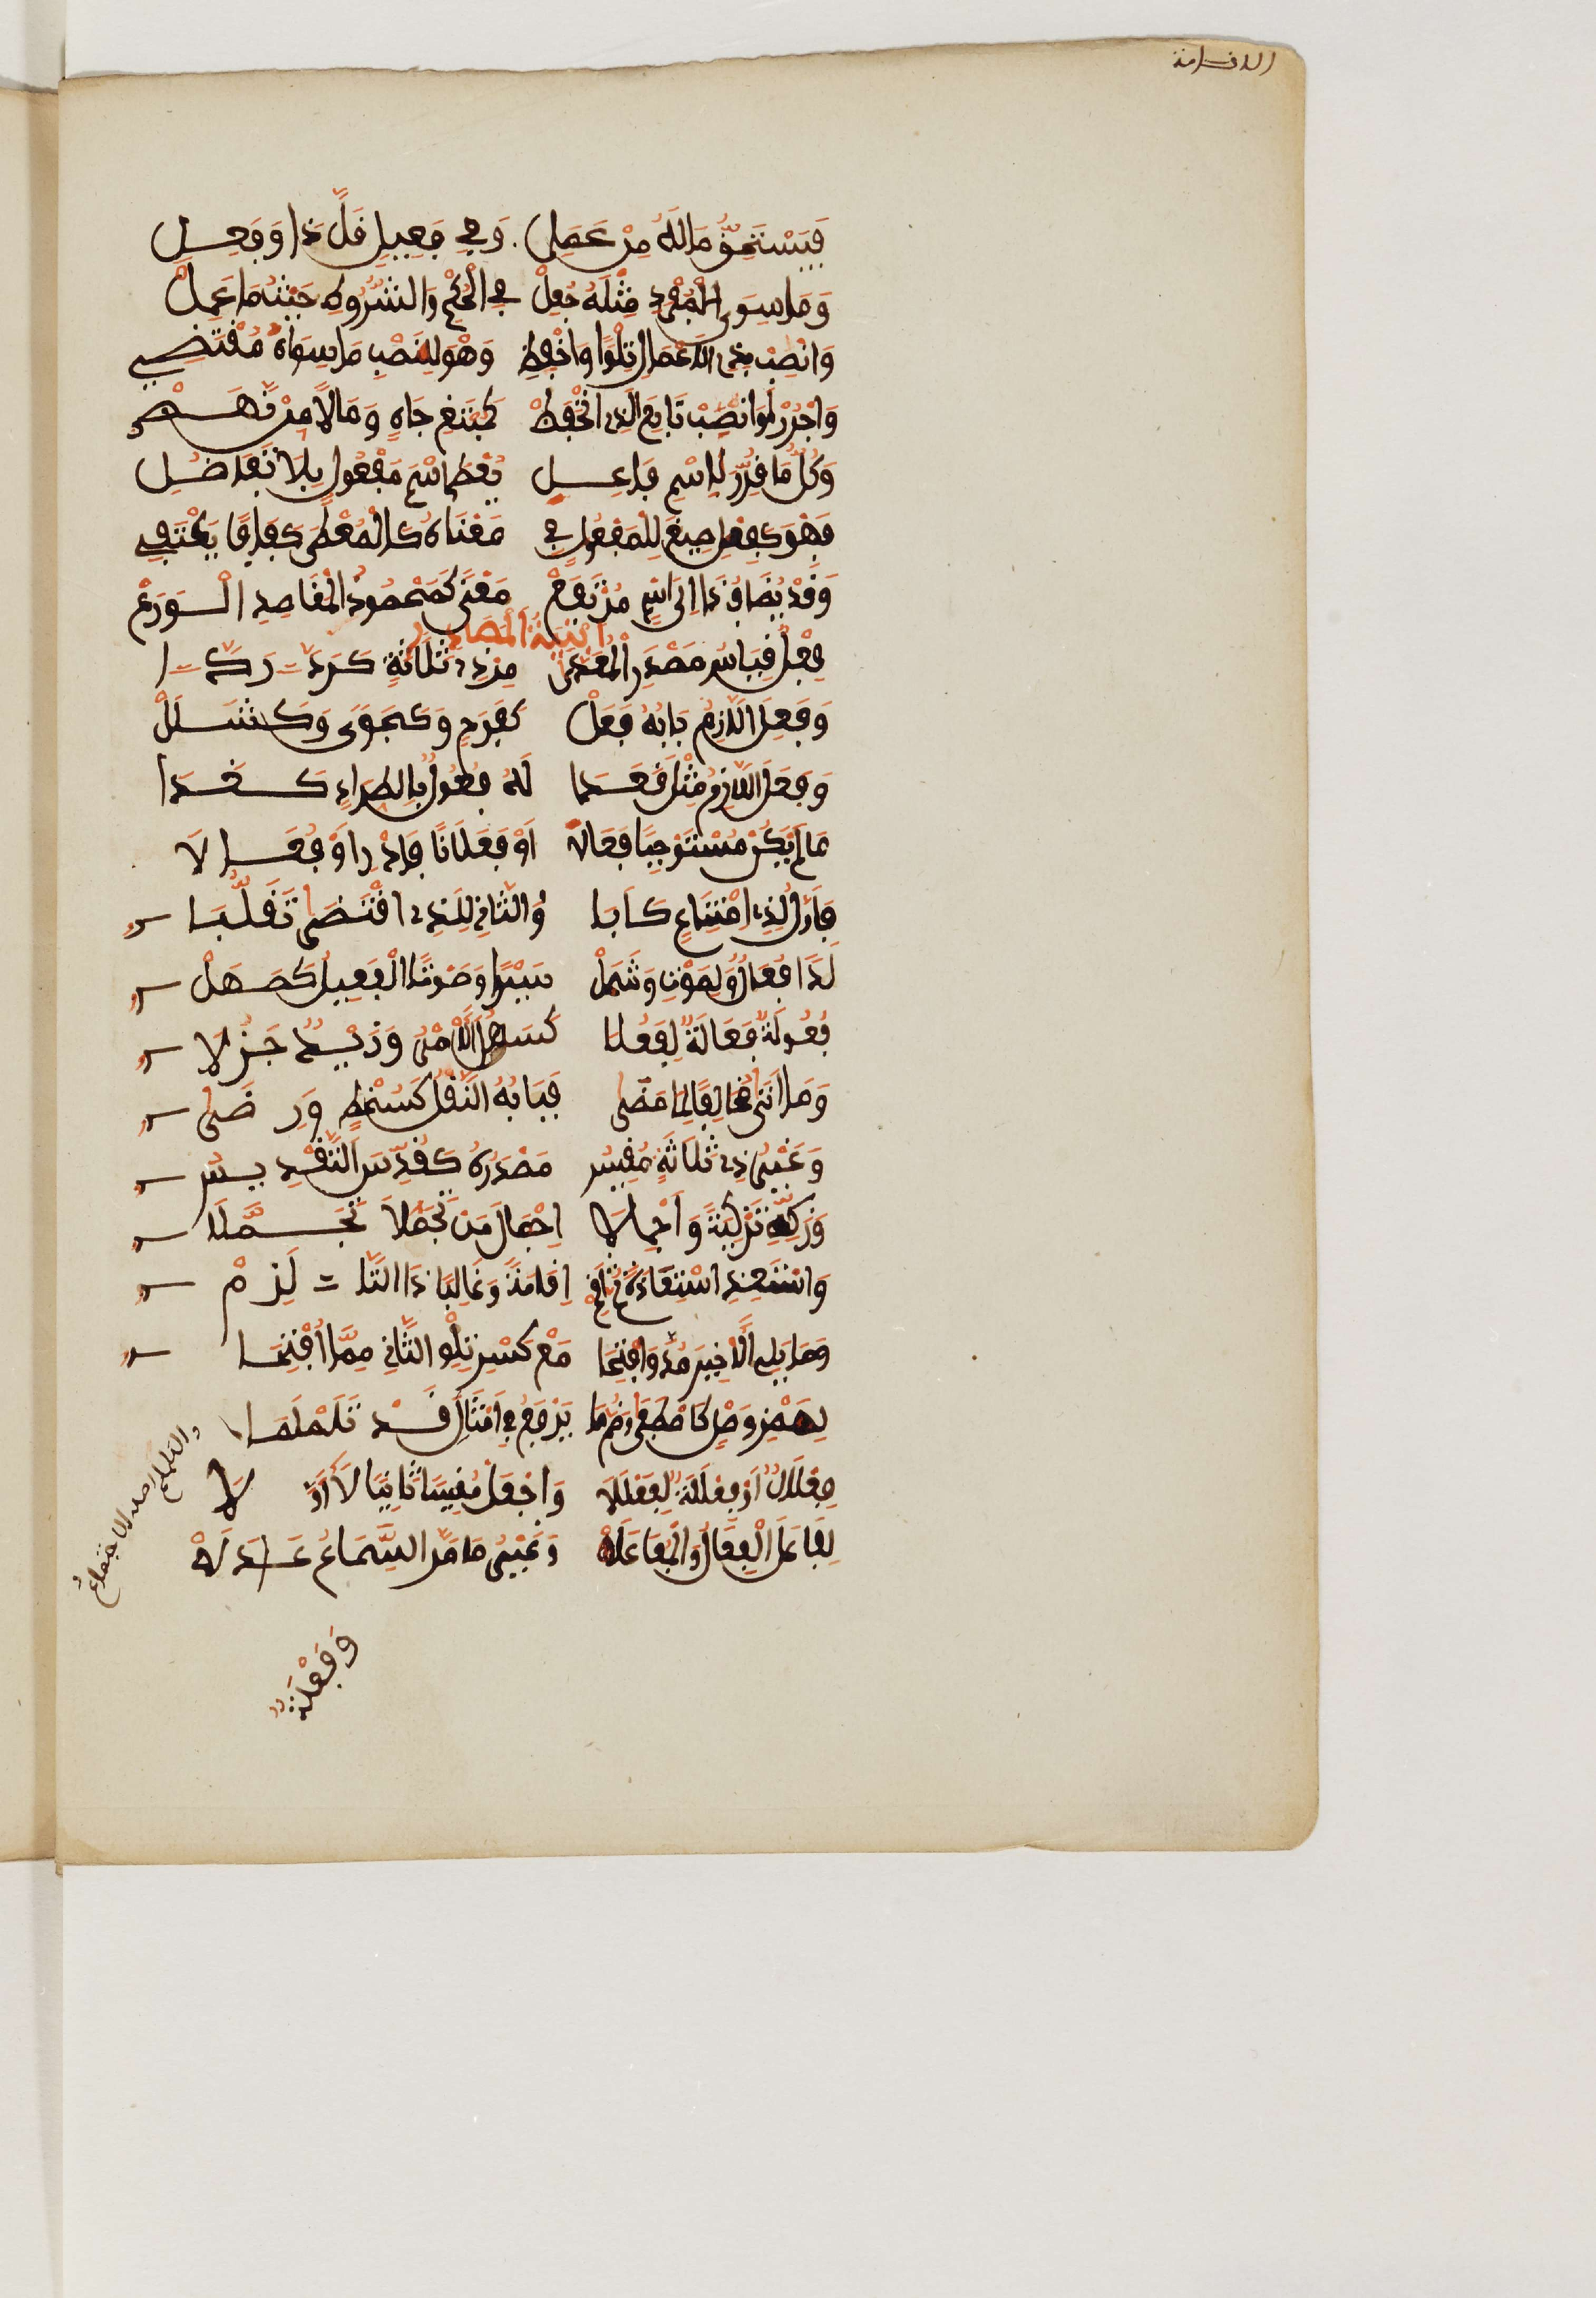 الاقامة
فَيَسْتَحِقُّ مَالَهُ مِنْ عَمَلِ وَفِي فَعِيلٍ قَلَّ ذَا وَفَعِلِ
وَمَا سِوَى الْمُفْرَدِ مِثْلَهُ جُعِلْ فِي الْحُكْمِ وَالشُّرُوطِ حَيْثُمَا عَمِلْ
وَانْصِبْ بِذِي الْاَعْمَالِ تِلْوًا وَاخْفِضِ وَهْوَ لِنَصْبِ مَا سِوَاهُ مُقْتَضِي
وَاجْرُرْ أَوِ انْصِبْ تَابِعَ الَّذِي انْخَفَضْ كَمُبْتَغِي جَاهٍ وَمَالًا مَنْ نَهَضْ
وَكُلُّ مَا قُرِّرَ لِاسْمِ فَاعِلِ يُعْطَى اسْمَ مَفْعُولٍ بِلَا تَفَاضُلِ
فَهْوَ كَفِعْلٍ صِيغَ لِلْمَفْعُولِ فِي مَعْنَاهُ كَالْمُعْطَى كَفَافًا يَكْتَفِي
وَقَدْ يُضَافُ ذَا اِلَى اسْمٍ مُرْتَفِعْ مَعْنًى كَمَحْمُودُ الْمَقَاصِدِ الْوَرِعْ
اَبْنِيَةُ الْمَصَادِر
فَعْلٌ قِيَاسُ مَصْدَرِ الْمُعَدَّى مِنْ ذِي ثَلَاثَةٍ كَرَدَّ رَدَّا
وَفَعِلَ اللَّازِمُ بَابُهُ فَعَلْ كَفَرَحٍ وَكَجَوًى وَكَشَلَلْ
وَفَعَلَ اللَّازِمُ مِثْلَ قَعَدَا لَهُ فُعُولٌ بِاطِّرَادٍ كَغَدَا
مَا لَمْ يَكُنْ مُسْتَوْجِبًا فِعَالَا اَوْ فَعَلَانًا فَادْرِ اَوْ فُعَالَا
فَاَوَّلٌ لِذِي امْتِنَاعٍ كَاَبَا وَالثَّانِي لِلَّذِي اقْتَضَى تَقَلُّبَا
لِدَا فُعَالٌ وَلِصَوْتٍ وَشَمَلْ سَيْرًا وَصَوْتًا الْفَعِيلُ كَصَهَلْ
فُعُولَةٌ فَعَالَةٌ لِفَعُلَا كَسَهُلَ الْاَمْرُ وَزَيْدٌ جَزُلَا
وَمَا اَتَى مُخَالِفًا لِمَا مَضَى فَبَابُهُ النَّقْلُ كَسُخْطٍ وَرِضَى
وَغَيْرُ ذِي ثَلَاثَةٍ مَقِيسُ مَصْدَرُهُ كَقُدِّسَ التَّقْدِيسُ
وَزَكِّهِ تَزْكِيَةً وَاَجْمِلَا اِجْمَالَ مَنْ تَجَمُّلًا تَجَمَّلَا
وَاسْتَعِذِ اسْتِعَاذَةً ثُمَّ اَقِمْ اِقَامَةً وَغَالِبًا ذَا التَّا لَزِمْ
وَمَا يَلِي الْاَخِيرَ مُدَّ وَافْتَحَا مَعْ كَسْرِ تِلْوِ الثَّانِي مِمَّا افْتُتِحَا
بِهَمْزِ وَصْلٍ كَاصْطَفَى وَضُمَّ مَا يَرْبَعُ فِي اَمْثَالِ قَدْ تَلَمْلَمَا
فِعْلَالٌ اَوْ فَعْلَلَةٌ لِفَعْلَلَا وَاجْعَلْ مَقِيسًا ثَانِيًا لَا اَوَّلَا
لِفَاعَلَ الْفِعَالُ وَالْمُفَاعَلَهْ وَغَيْرُ مَا مَرَّ السَّمَاعُ عَادَلَهْ
وَفَعْلَةٌ